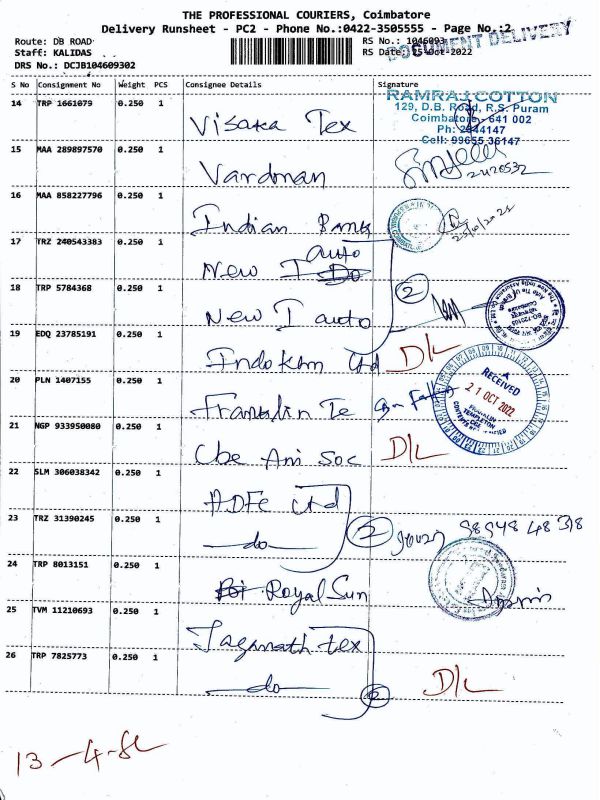 THE PROFESSIONAL COURIERS, Coimbatore
Delivery Runsheet - PC2 - Phone No.:0422-3505555 - Page No.:2
DOCUMENT DELIVERY
Route: DB ROAD
RS No.: 1046093
Staff: KALIDAS
RS Date: 25-Oct-2022
DRS No.: DCJB104609302
S No Consignment No Weight PCS Consignee Details Signature
RAMRAJ COTTON
129, D.B. Road, R.S. Puram
Coimbatore - 641 002
Ph: 2544147
Cell: 99655 36147
14 TRP 1661079 0.250 1
Visaka Tex
15 MAA 289897570 0.250 1
Vardman
2420532
16 MAA 858227796 0.250 1
Indian Bank
25/10/2022
17 TRZ 240543383 0.250 1
auto
New I Do
2
18 TRP 5784368 0.250 1
New I auto
19 EDQ 23785191 0.250 1
Indokem Ltd D/L
20 PLN 1407155 0.250 1
Franklin Te
RECEIVED
21 OCT 2022
FRANKLIN
TEMPLETON
21 NGP 933950080 0.250 1
Cbe Ani Soc D/L
22 SLM 306038342 0.250 1
ADFe Ltd
23 TRZ 31390245 0.250 1
do 2 98948 48318
24 TRP 8013151 0.250 1
Royal Sun
25 TVM 11210693 0.250 1
Jaganath tex
26 TRP 7825773 0.250 1
do 2 D/L
13-4-8L